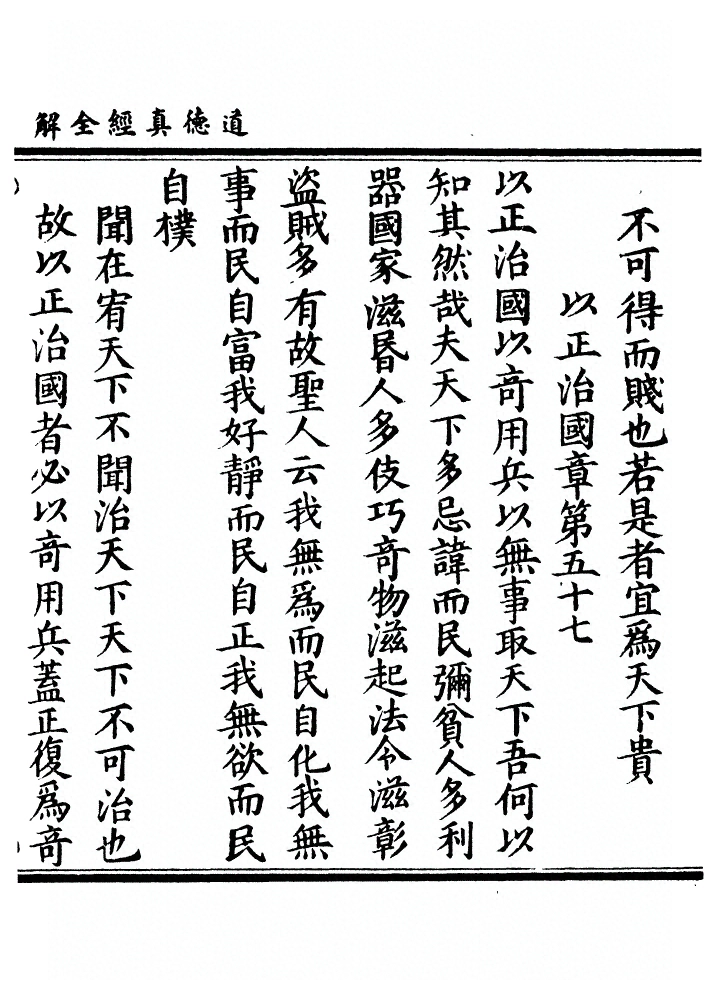 道德真經全解
不可得而賤也若是者宜為天下貴
以正治國章第五十七
以正治國以竒用兵以無事取天下吾何以
知其然哉夫天下多忌諱而民彌貧人多利
器國家滋昬人多伎巧竒物滋起法令滋彰
盜賊多有故聖人云我無爲而民自化我無
事而民自富我好靜而民自正我無欲而民
自樸
聞在宥天下不聞治天下天下不可治也
故以正治國者必以竒用兵蓋正復爲竒